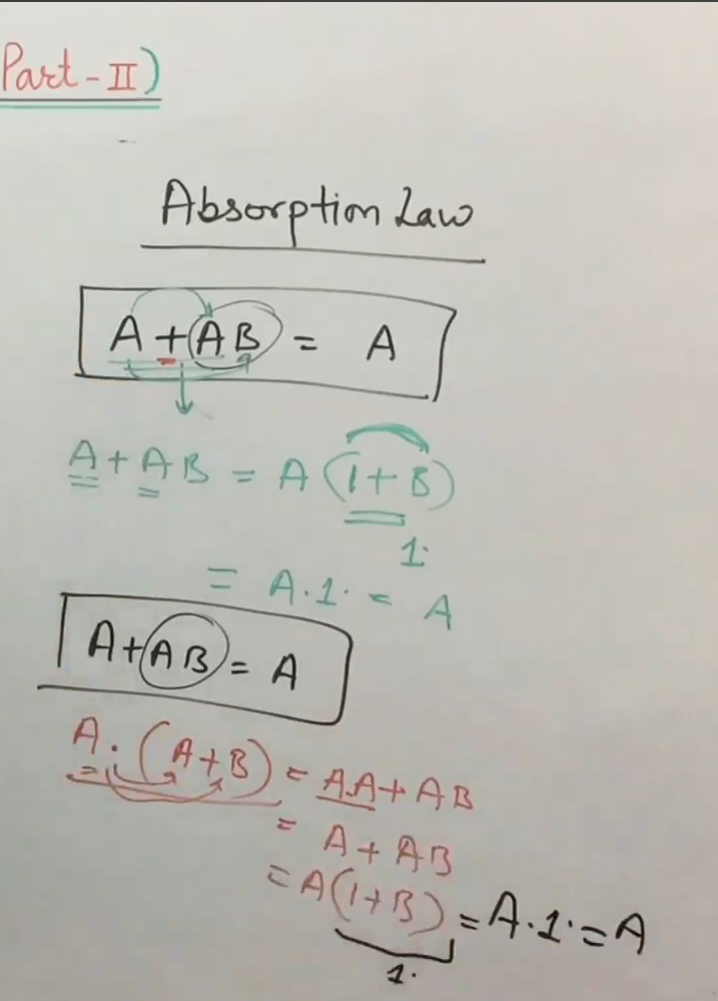 Part-II)
Absorption Law
A+AB = A
A+AB = A(1+B)
1.
= A.1. = A
A+AB = A
A.(A+B) = A.A+AB
= A+AB
= A(1+B) = A.1. = A
1.